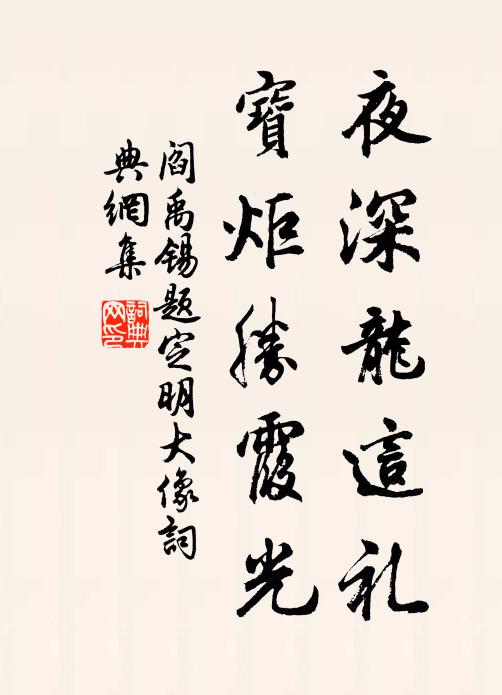 夜深龍這礼
寶炬勝霞光
閻禹錫題定明大像詞
典網集
詞典网印